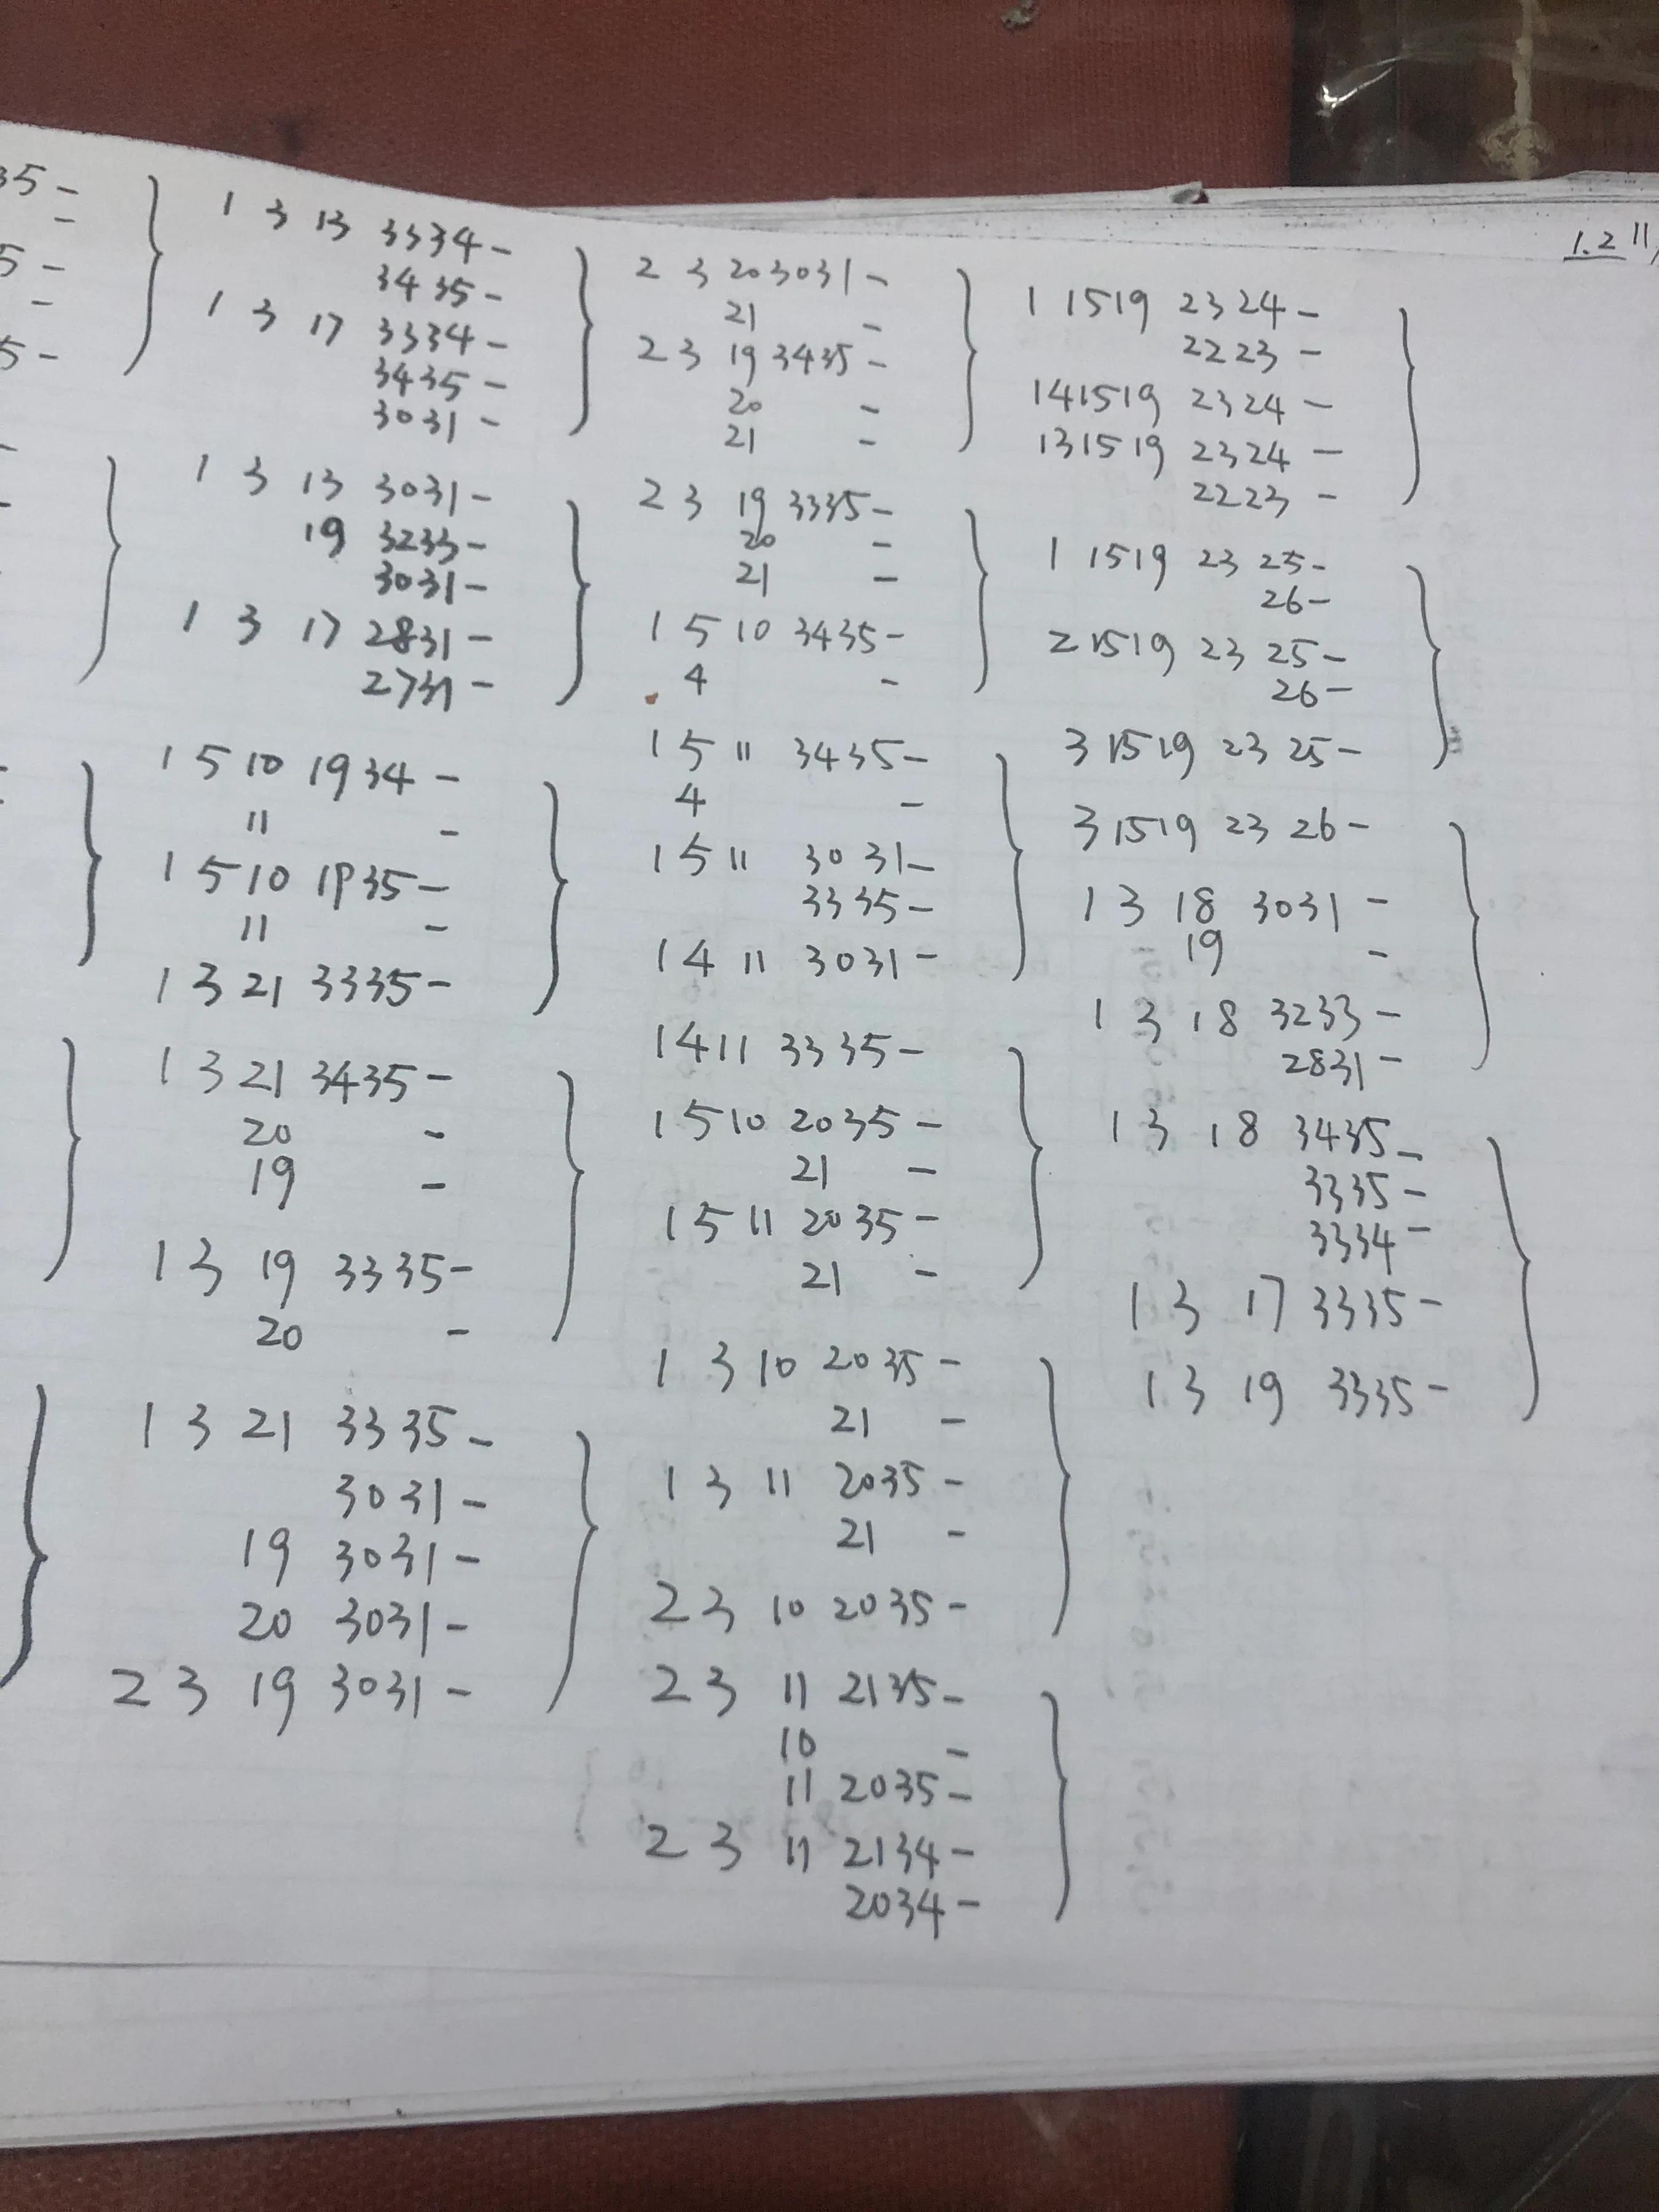 35-
-
5-
-
5-
1 3 13 3334-
3435-
1 3 17 3334-
3435-
3031-
1 3 13 3031-
19 3233-
3031-
1 3 17 2831-
2731-
1 5 10 1934-
11 -
1 5 10 1935-
11 -
1 3 21 3335-
1 3 21 3435-
20 -
19 -
1 3 19 3335-
20 -
1 3 21 3335-
3031-
19 3031-
20 3031-
2 3 19 3031-
2 3 20 3031-
21 -
2 3 19 3435-
20 -
21 -
2 3 19 3335-
20 -
21 -
1 5 10 3435-
4 -
1 5 11 3435-
4 -
1 5 11 3031-
3335-
1 4 11 3031-
1 4 11 3335-
1 5 10 2035-
21 -
1 5 11 2035-
21 -
1 3 10 2035-
21 -
1 3 11 2035-
21 -
2 3 10 2035-
2 3 11 2135-
10 -
11 2035-
2 3 11 2134-
2034-
1.2 11/
1 1519 2324-
2223-
141519 2324-
131519 2324-
2223-
1 1519 23 25-
26-
2 1519 23 25-
26-
3 1519 23 25-
3 1519 23 26-
1 3 18 3031-
19 -
1 3 18 3233-
2831-
1 3 18 3435-
3335-
3334-
1 3 17 3335-
1 3 19 3335-